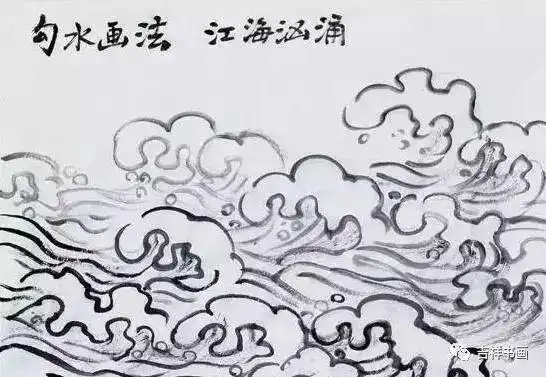 勾水画法 江海汹涌
吉祥书画